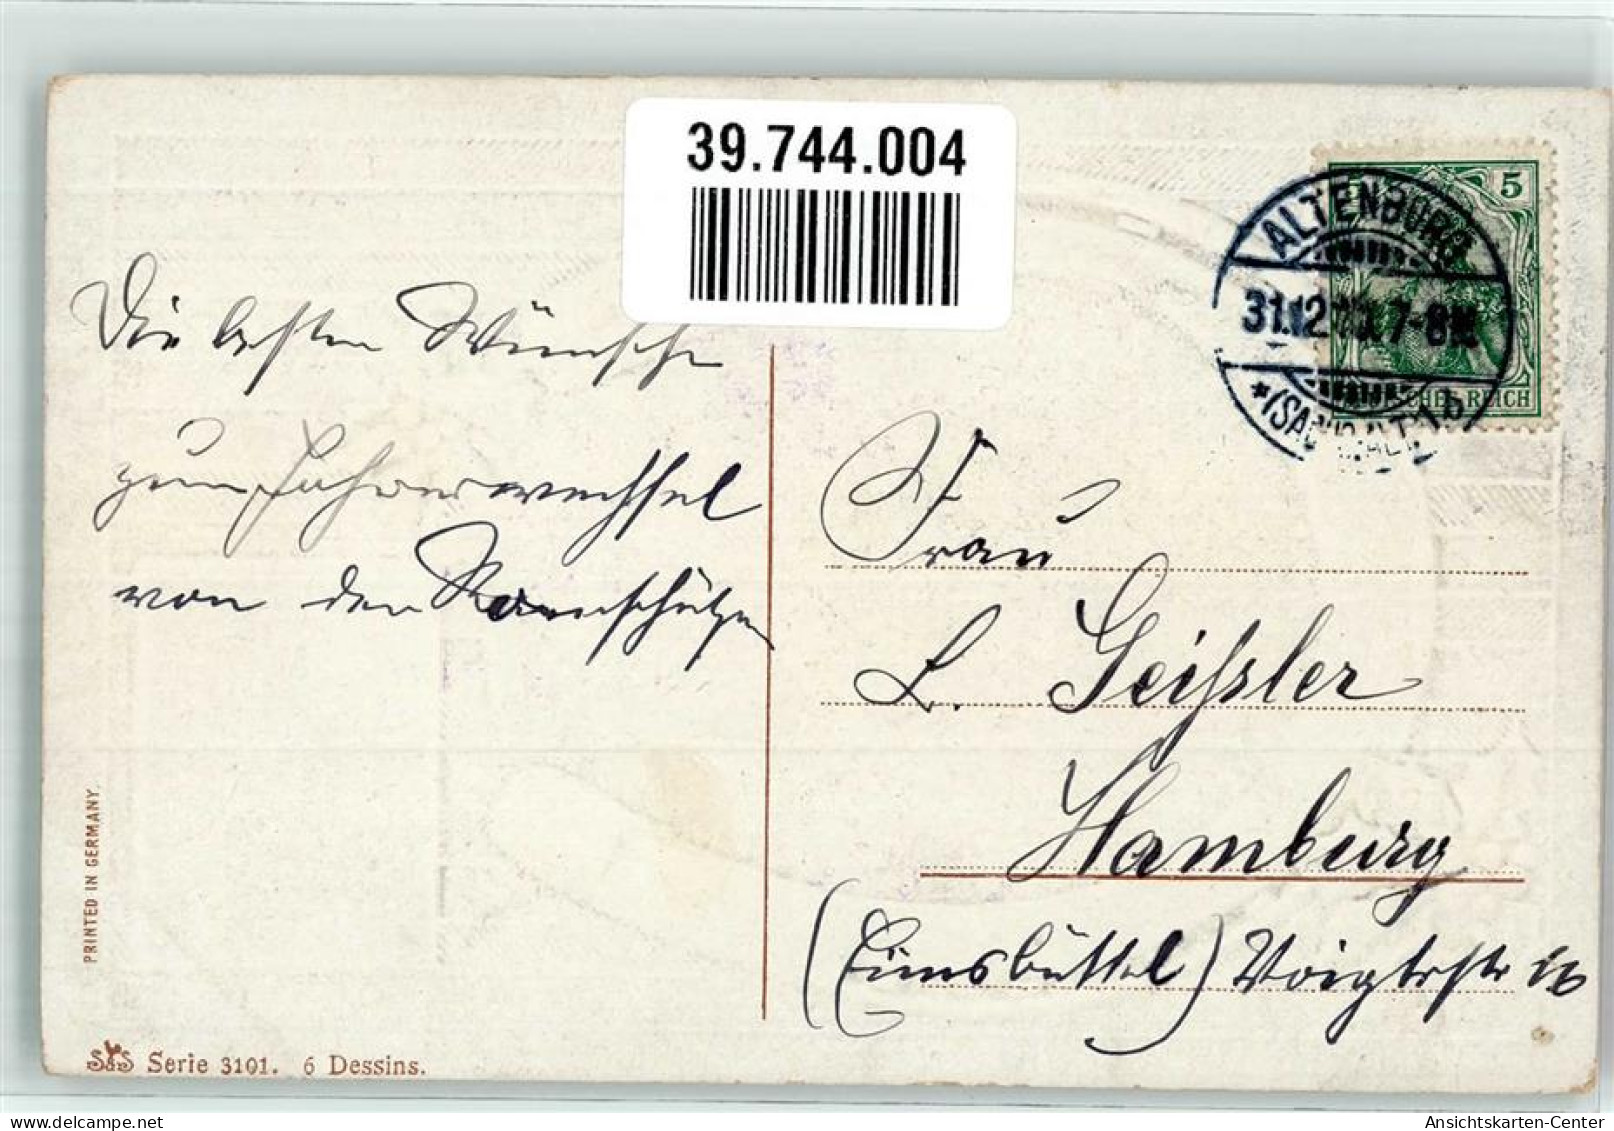 39.744.004
ALTENBURG
31.12.10. 7-8N.
*(SACHS.ALT.)1b
5
5
DEUTSCHES REICH
Die besten Wünsche
zum Jahreswechsel
von den
Frau
L. Geißler
Hamburg
(Eimsbüttel) Voigtstr 16
PRINTED IN GERMANY.
S&S Serie 3101. 6 Dessins.
Ansichtskarten-Center